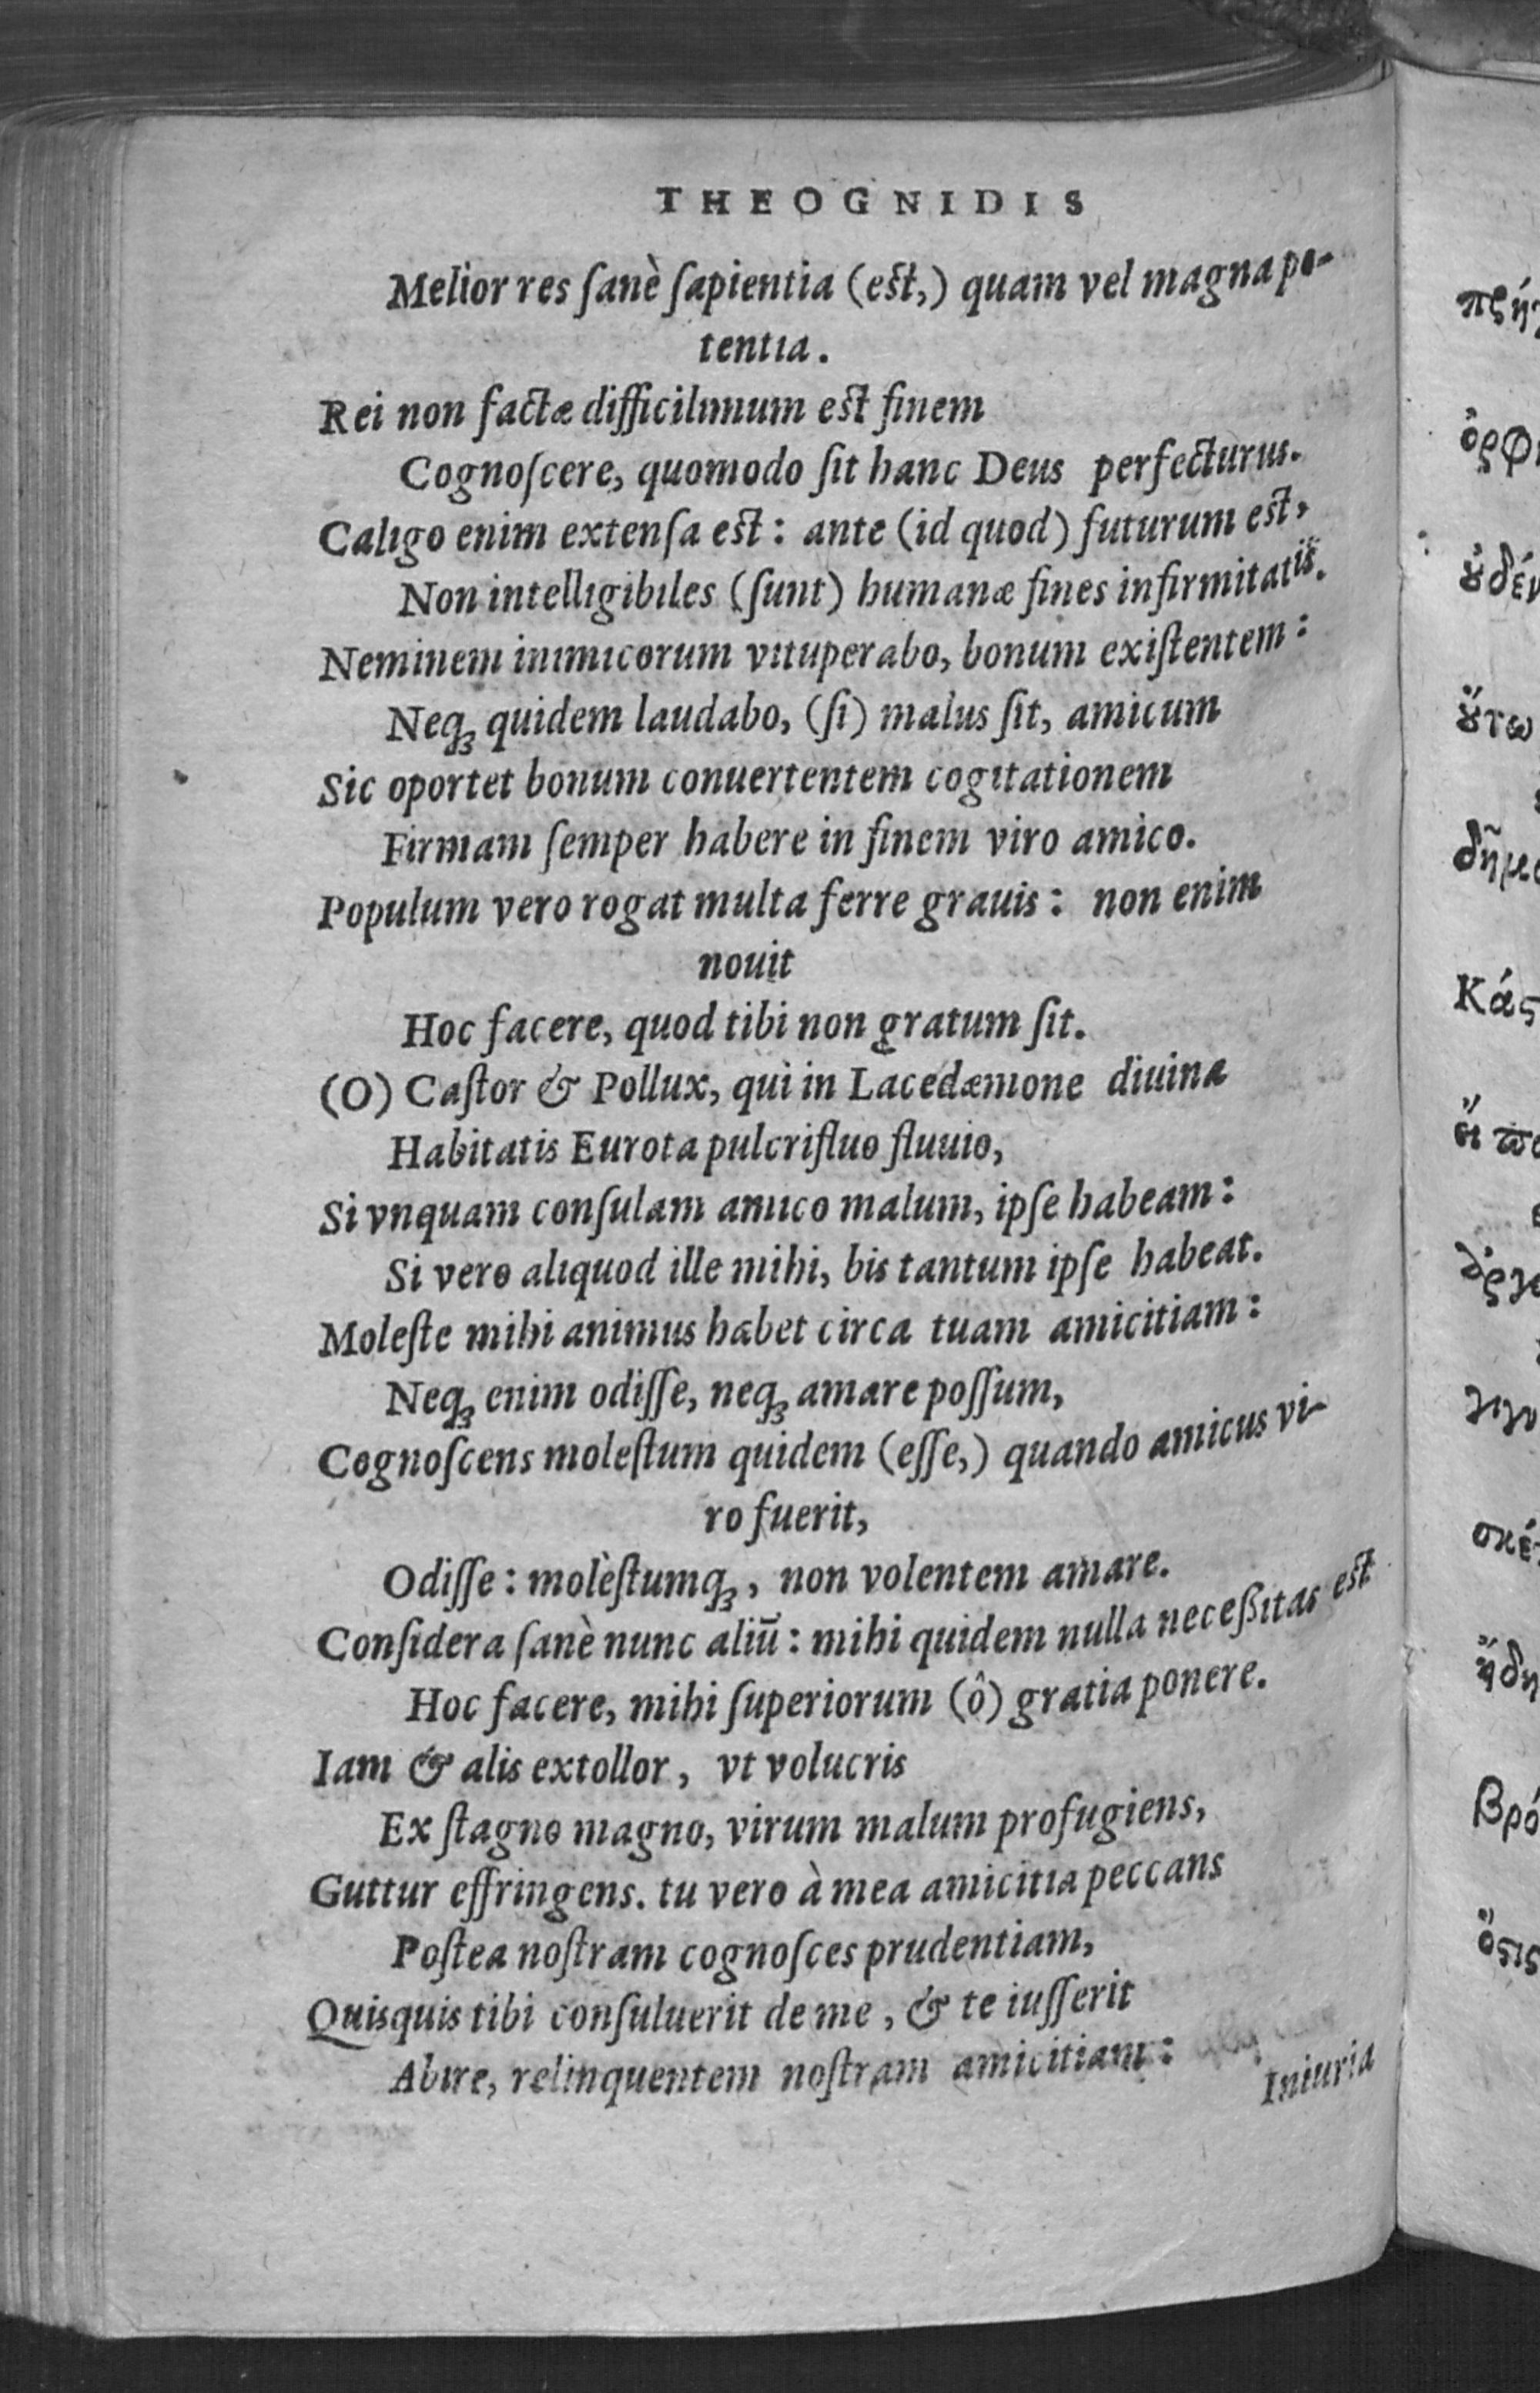 THEOGNIDIS
Melior res ſanè ſapientia (eſt,) quam vel magna po-
tentia.
Rei non factæ difficilimum eſt finem
Cognoſcere, quomodo ſit hanc Deus perfecturus.
Caligo enim extenſa eſt: ante (id quod) futurum eſt,
Non intelligibiles (ſunt) humanæ fines infirmitatis.
Neminem inimicorum vituperabo, bonum exiſtentem:
Neqꝫ quidem laudabo, (ſi) malus ſit, amicum
Sic oportet bonum conuertentem cogitationem
Firmam ſemper habere in finem viro amico.
Populum vero rogat multa ferre grauis: non enim
nouit
Hoc facere, quod tibi non gratum ſit.
(O) Caſtor & Pollux, qui in Lacedæmone diuina
Habitatis Eurota pulcrifluo fluuio,
Si vnquam conſulam amico malum, ipſe habeam:
Si vero aliquod ille mihi, bis tantum ipſe habeat.
Moleſte mihi animus habet circa tuam amicitiam:
Neqꝫ enim odiſſe, neqꝫ amare poſſum,
Cognoſcens moleſtum quidem (eſſe,) quando amicus vi-
ro fuerit,
Odiſſe: molèſtumqꝫ, non volentem amare.
Conſidera ſanè nunc aliū: mihi quidem nulla neceßitas eſt
Hoc facere, mihi ſuperiorum (ô) gratia ponere.
Iam & alis extollor, vt volucris
Ex ſtagno magno, virum malum profugiens,
Guttur effringens. tu vero à mea amicitia peccans
Poſtea noſtram cognoſces prudentiam,
Quisquis tibi conſuluerit de me, & te iuſſerit
Abire, relinquentem noſtram amicitiam:
Iniuria
ὀρφ
ὐδέν
ὕτω
δῆμο
Κάς
γιγν
σκέ
ἤδη
βρό
ὅςις